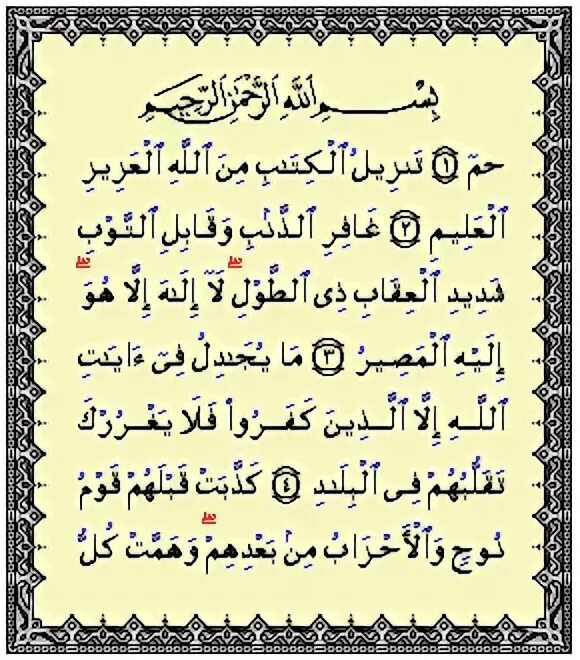 بِسْمِ ٱللَّهِ ٱلرَّحْمَٰنِ ٱلرَّحِيمِ
حمٓ ﴿١﴾ تَنزِيلُ ٱلْكِتَٰبِ مِنَ ٱللَّهِ ٱلْعَزِيزِ
ٱلْعَلِيمِ ﴿٢﴾ غَافِرِ ٱلذَّنۢبِ وَقَابِلِ ٱلتَّوْبِ
شَدِيدِ ٱلْعِقَابِ ذِى ٱلطَّوْلِ ۖ لَآ إِلَٰهَ إِلَّا هُوَ ۖ
إِلَيْهِ ٱلْمَصِيرُ ﴿٣﴾ مَا يُجَٰدِلُ فِىٓ ءَايَٰتِ
ٱللَّهِ إِلَّا ٱلَّذِينَ كَفَرُوا۟ فَلَا يَغْرُرْكَ
تَقَلُّبُهُمْ فِى ٱلْبِلَٰدِ ﴿٤﴾ كَذَّبَتْ قَبْلَهُمْ قَوْمُ
نُوحٍ وَٱلْأَحْزَابُ مِنۢ بَعْدِهِمْ ۖ وَهَمَّتْ كُلُّ